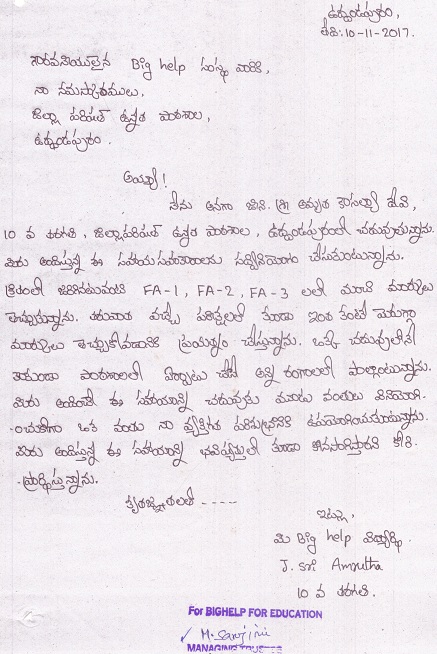 ఉద్దండపురం,
తేది:10-11-2017.
గౌరవనీయులైన Big help సంస్థ వారికి,
నా నమస్కారములు,
జిల్లా పరిషత్ ఉన్నత పాఠశాల,
ఉద్దండపురం.
అయ్యా!
నేను అనగా జాన. శ్రీ అమృత కౌసల్యా దేవి,
10 వ తరగతి, జిల్లాపరిషత్ ఉన్నత పాఠశాల, ఉద్దండపురంలో చదువుతున్నాను.
మీరు అందిస్తున్న ఈ సహాయసహకారాలను సద్వినియోగం చేసుకుంటున్నాను.
జరిగినటువంటి FA-1, FA-2, FA-3 లలో మంచి మార్కులు
తెచ్చుకున్నాను. తరువాత వచ్చే పరీక్షలలో కూడా ఇంత కంటే మెరుగ్గా
మార్కులు తెచ్చుకోవడానికి ప్రయత్నం చేస్తున్నాను. ఒక్క చదువులోనే
కాకుండా పాఠశాలలో ఏర్పాటు చేసే అన్ని రంగాలలో పాల్గొంటున్నాను.
మీరు అందించే ఈ సహాయాన్ని చదువుకు మూడు వంతులు వినియోగి-
-ంచుకోగా ఒక వంతు నా వ్యక్తిగత పరిశుభ్రతకి ఉపయోగించుకుంటున్నాను.
మీరు అందిస్తున్న ఈ సహాయాన్ని భవిష్యత్తులో కూడా కొనసాగిస్తారని కోరి-
-ప్రార్థిస్తున్నాను.
కృతజ్ఞతలతో ----
ఇట్లు,
మీ Big help విద్యార్థి.
J. Sri Amrutha
10 వ తరగతి.
For BIGHELP FOR EDUCATION
M. Sarojini
MANAGING TRUSTEE